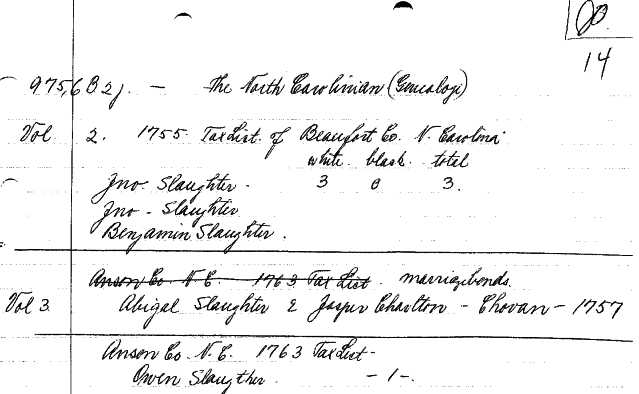 14
975,6 B2j. — The North Carolinian (Genealogi)
Vol 2. 1755 Tax List of Beaufort Co. N. Carolina
white black total
Jno. Slaughter. 3 0 3.
Jno - Slaughter
Benjamin Slaughter.
Anson Co. N.C. 1763 Tax List. marriage bonds.
Vol 3 Abigal Slaughter & Jasper Charlton - Chovan - 1757
Anson Co. N.C. 1763 Tax List -
Owen Slaugther. - 1 -.